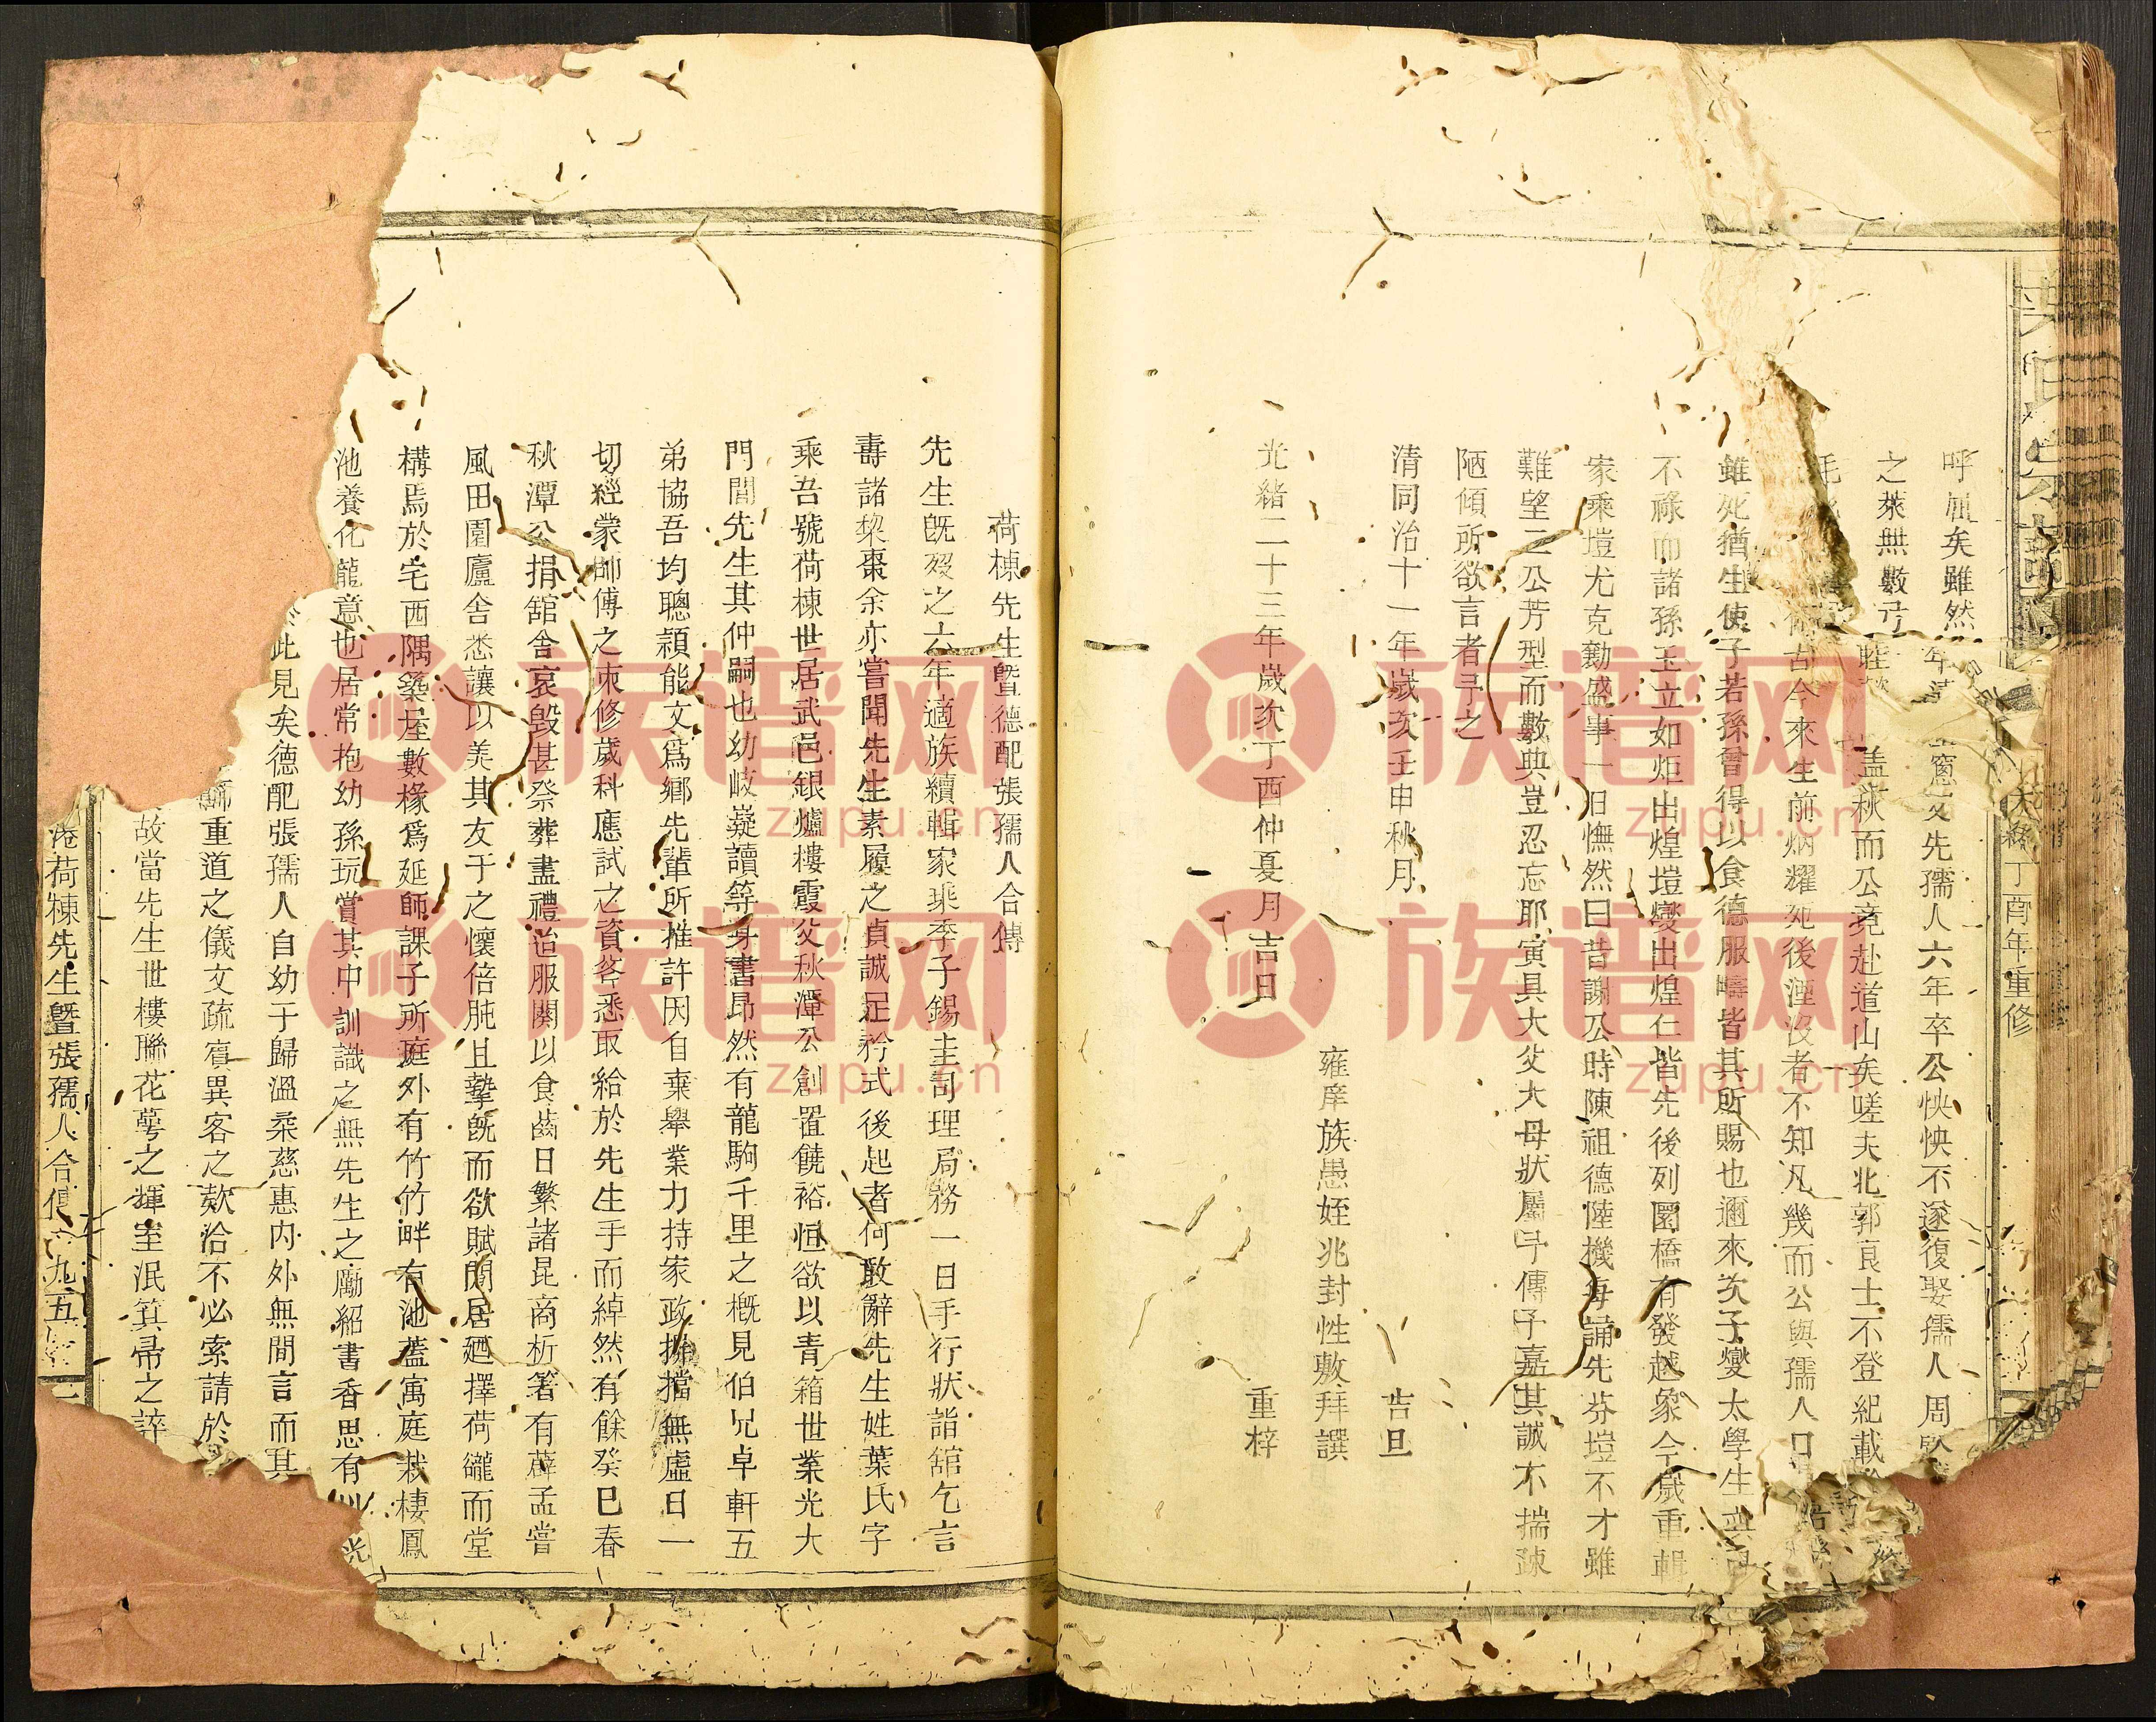 呼屈矣雖然年窗父先孺人六年卒公怏怏不遂復娶孺人周
之萊無數亓蓋秋而公竟赴道山矣嗟夫北郭良士不登紀載
古今來生前炳耀死後湮沒者不知凡幾而公與孺人
雖死猶生使子若孫曾得以食德服疇皆其所賜也邇來次子燮太學生
不祿而諸孫玉立如炬出煌塏燮出煌仁皆先後列圜橋有發越象今歲重輯
家乘塏尤克勷盛事一日憮然曰昔謝公時陳祖德陸機每誦先芬塏不才雖
難望二公芳型而數典豈忍忘耶寅具大父大母狀屬予傳予嘉其誠不揣疎
陋傾所欲言者予之
清同治十一年歲次壬申秋月
吉旦
雍庠族愚姪兆封性敷拜譔
光緒二十三年歲次丁酉仲夏月吉旦
重梓
丁酉年重修
荷棟先生曁德配張孺人合傳
先生旣歿之六年適族續輯家乘季子錫圭司理局務一日手行狀詣舘乞言
壽諸棃棗余亦嘗聞先生素履之貞誠足矜式後起者何敢辭先生姓葉氏字
乘吾號荷棟世居武邑銀爐樓霞父秋潭公創置饒裕恒欲以青箱世業光大
門閭先生其仲嗣也幼岐嶷讀等身書昂然有龍駒千里之概見伯兄卓軒五
弟協吾均聰穎能文爲鄉先輩所推許因自棄舉業力持家政摒擋無虛日一
切經蒙師傅之束修歲科應試之資咨悉取給於先生手而綽然有餘癸巳春
秋潭公捐舘舍哀毀甚祭葬盡禮迨服闋以食齒日繁諸昆商析箸有薛孟嘗
風田園廬舍悉讓以美其友于之懷倍肫且摯旣而欲賦閒居廼擇荷巃而堂
構焉於宅西隅築座數椽爲延師課子所庭外有竹竹畔有池蓋寓庭栽棲鳳
池養化龍意也居常抱幼孫玩賞其中訓識之無先生之勵紹書香思有光
此見矣德配張孺人自幼于歸溫柔慈惠內外無間言而其
師重道之儀文疏賓異客之欵洽不必索請於
故當先生世樓聯花萼之輝室泯箕帚之誶
荷棟先生曁張孺人合傳
九五
族谱网
zupu.cn
族谱网
zupu.cn
族谱网
zupu.cn
族谱网
zupu.cn